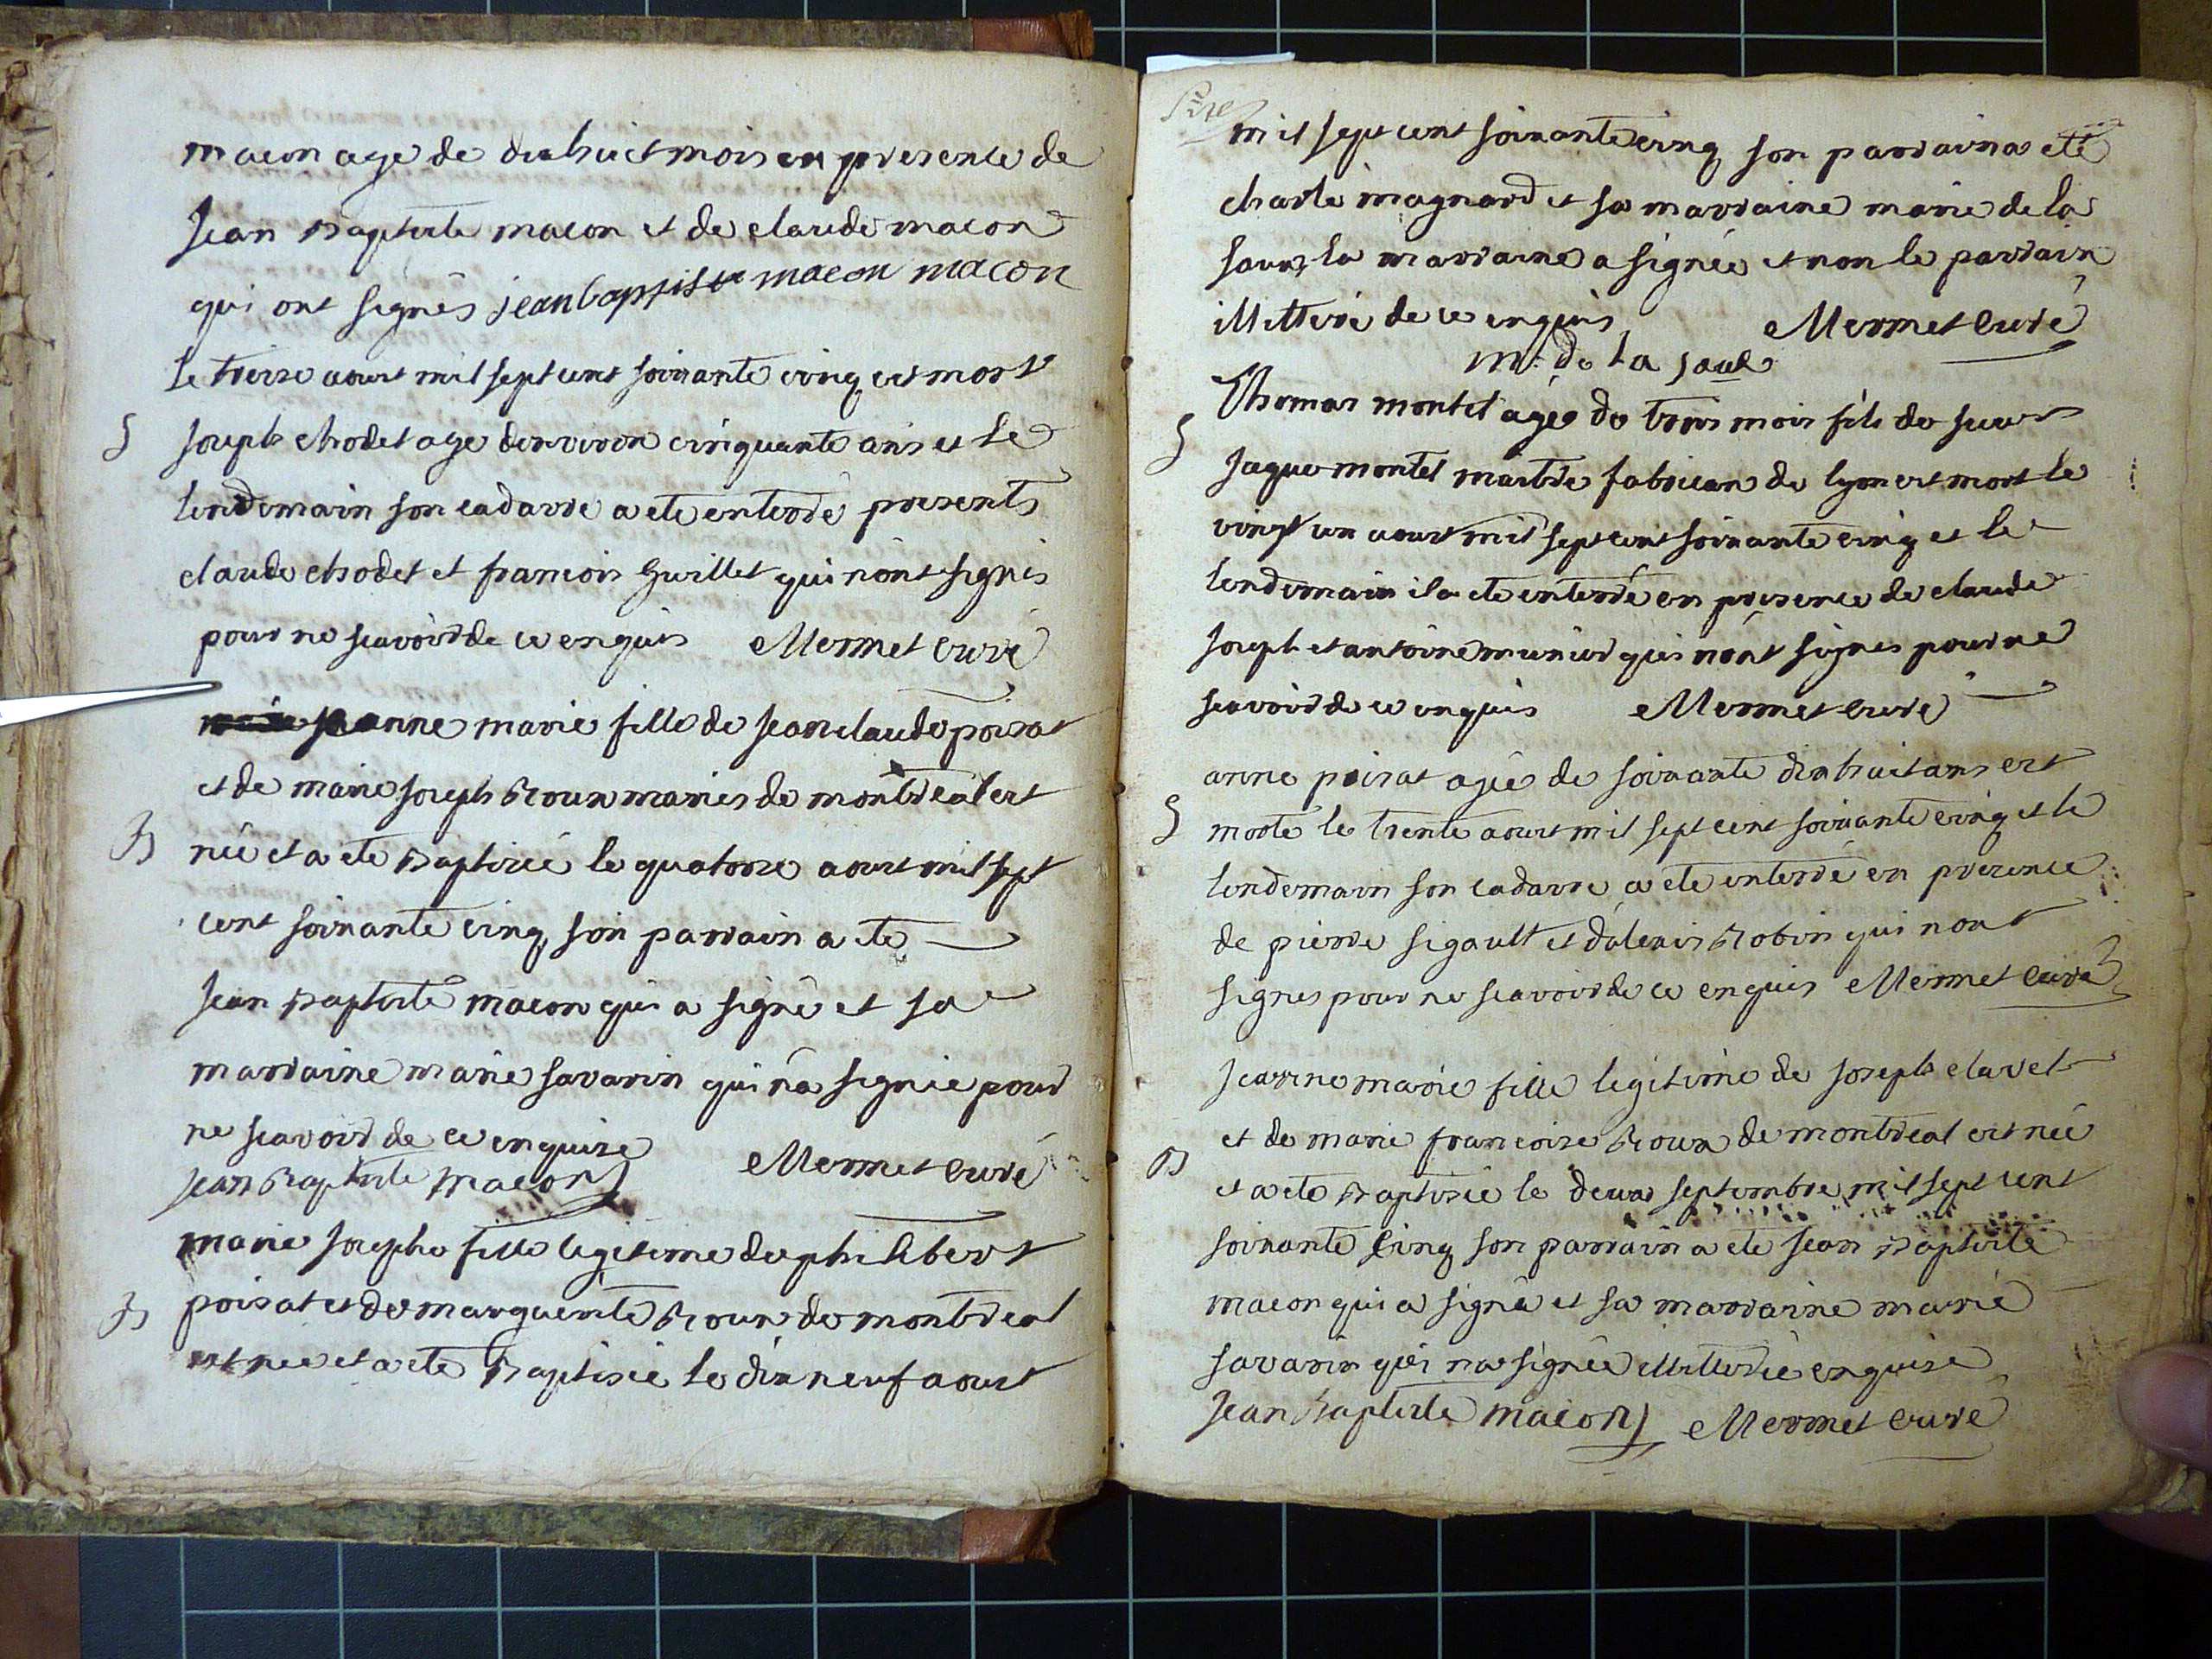 macon age de dixhuict mois en presence de
Jean Baptiste macon et de claude macon
qui ont signés jean baptiste macon macon
Le treize aoust mil sept cent soixante cinq est mort
S Joseph chodet age denviron cinquante ans et le
lendemain son cadavre a ete enterré presents
claude chodet et francois Guillet qui n'ont signés
pour ne scavoir de ce enquis Mermet curé
anne marie fille de Jean claude poisat
et de marie Joseph Roux mariés de montreal est
B née et a ete Baptisée le quatorze aoust mil sept
cent soixante cinq son parrain a ete
Jean Baptiste macon qui a signé et sa
marraine marie savarin qui n'a signée pour
ne scavoir de ce enquise
Jean Baptiste macon Mermet curé
marie Josephe fille legitime de philibert
B poisat et de marguerite Roux de montreal
est nee et a ete Baptisée le dix neuf aoust
mil sept cent soixante cinq son parrain a eté
charle magnard et sa marraine marie de la
saux, la marraine a signée et non le parrain
illitteré de ce enquis Mermet curé
m. de la saux
Thomas montet agée de trois mois fils de sieur
S Jaque montet maitre fabrican de lyon est mort le
vingt un aoust mil sept cent soixante cinq et le
lendemain il a ete enterré en presence de claude
Joseph et antoine munier qui n'ont signes pour ne
scavoir de ce enquis Mermet curé
anne poisat agée de soixante dixhuit ans est
S morte le trente aoust mil sept cent soixante cinq et le
lendemain son cadavre a ete enterré en presence
de pierre sigault et d'alexis Robin qui n'ont
signes pour ne scavoir de ce enquis Mermet curé
Jeanne marie fille legitime de Joseph clavel
et de marie francoise Roux de montreal est née
B et a ete Baptisée le deux septembre mil sept cent
soixante cinq son parrain a ete Jean Baptiste
macon qui a signé et sa marraine marie
savarin qui n'a signée illitterée enquise
Jean Baptiste macon Mermet curé